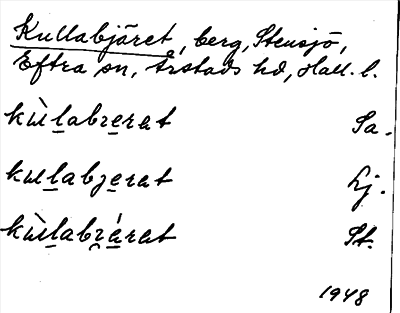 Kullabjäret, berg, Stensjö,
Eftra sn, Årstads hd, Hall. l.
kùlabzerat Sa.
kulabzerat Lj.
kùlabzárat St.
1948